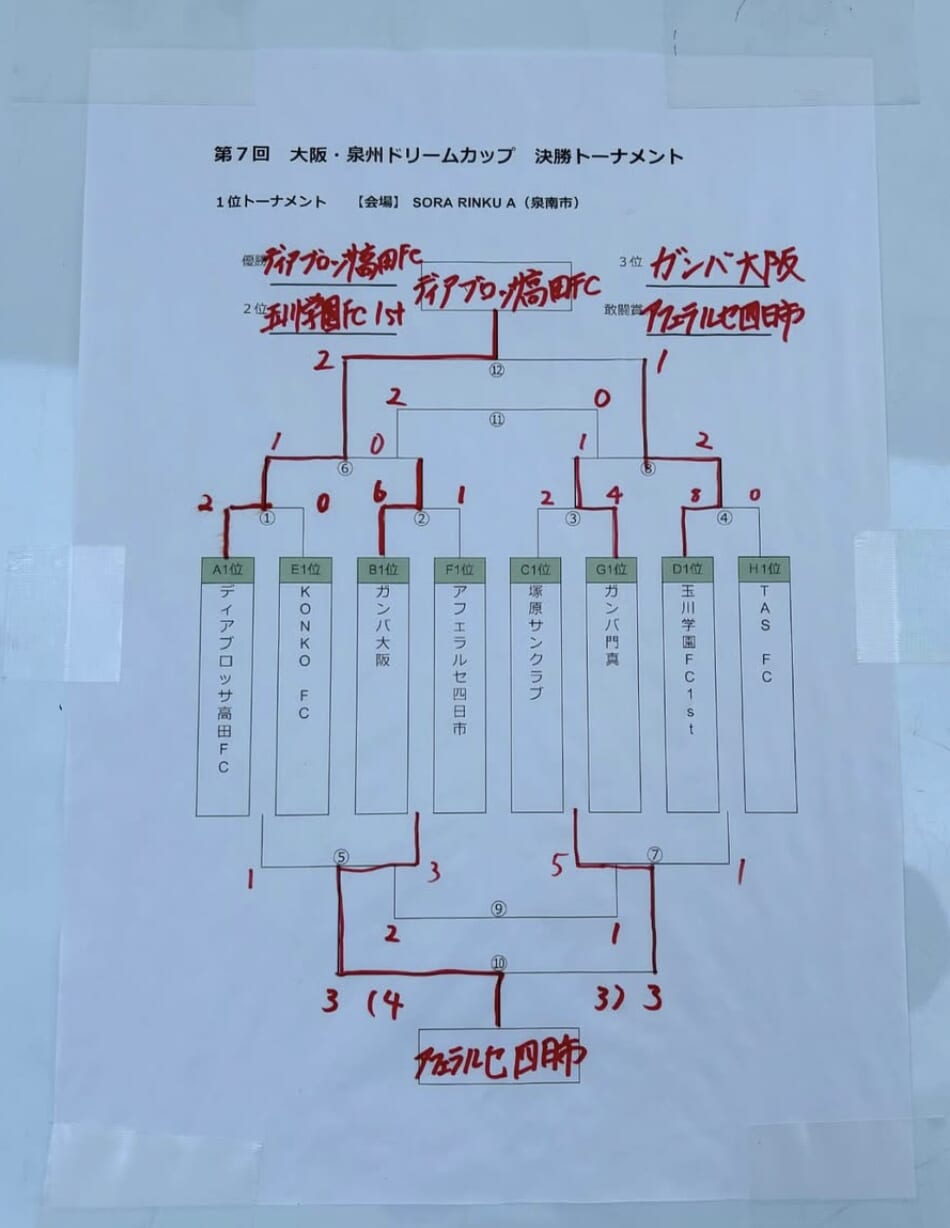 第７回　大阪・泉州ドリームカップ　決勝トーナメント
１位トーナメント　【会場】 SORA RINKU A（泉南市）
優勝 ディアブロッサ高田FC
３位 ガンバ大阪
ディアブロッサ高田FC
２位 玉川学園FC 1st
敢闘賞 アフェラルセ四日市
2 ⑫ 1
2 ⑪ 0
1 ⑥ 0 1 ⑧ 2
2 ① 0 6 ② 1 2 ③ 4 8 ④ 0
A1位 E1位 B1位 F1位 C1位 G1位 D1位 H1位
ディアブロッサ高田FC
KONKO FC
ガンバ大阪
アフェラルセ四日市
塚原サンクラブ
ガンバ門真
玉川学園FC1st
TAS FC
1 ⑤ 3 5 ⑦ 1
2 ⑨ 1
⑩
3 (4 3) 3
アフェラルセ四日市